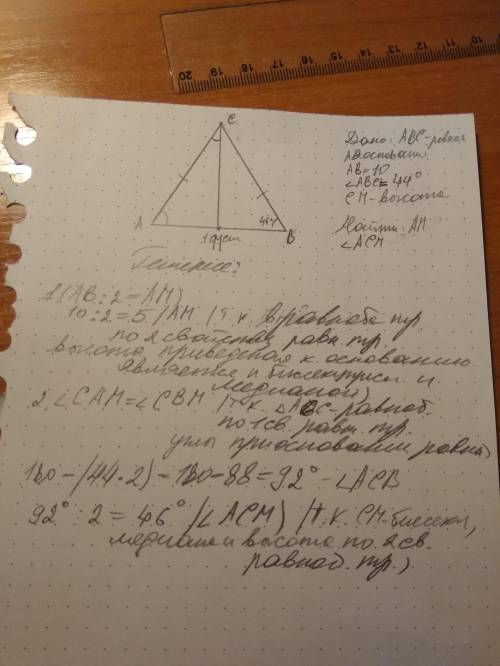 20 19 18 17 16 15 14 13 12 11 10
C
A
B
44°
10 cm
Дано: ABC-равноб
AB основани
AB=10
∠ABC=44°
CM-высота
Найти: AM
∠ACM
Решение:
1(AB:2=AM)
10:2=5/AM/т.к. в равноб тр
по 2 свойству равн. тр.
высота приведеная к основанию
является и биссектрисой и
медианой)
2 ∠CAM=∠CBM /т.к. △ABC-равноб.
по 1 св. равн. тр.
углы при основании равны)
180-(44·2)=180-88=92°-∠ACB
92°:2=46° /∠ACM) /т.к. CM-биссект,
медиана и высота по 2 св.
равноб. тр.)